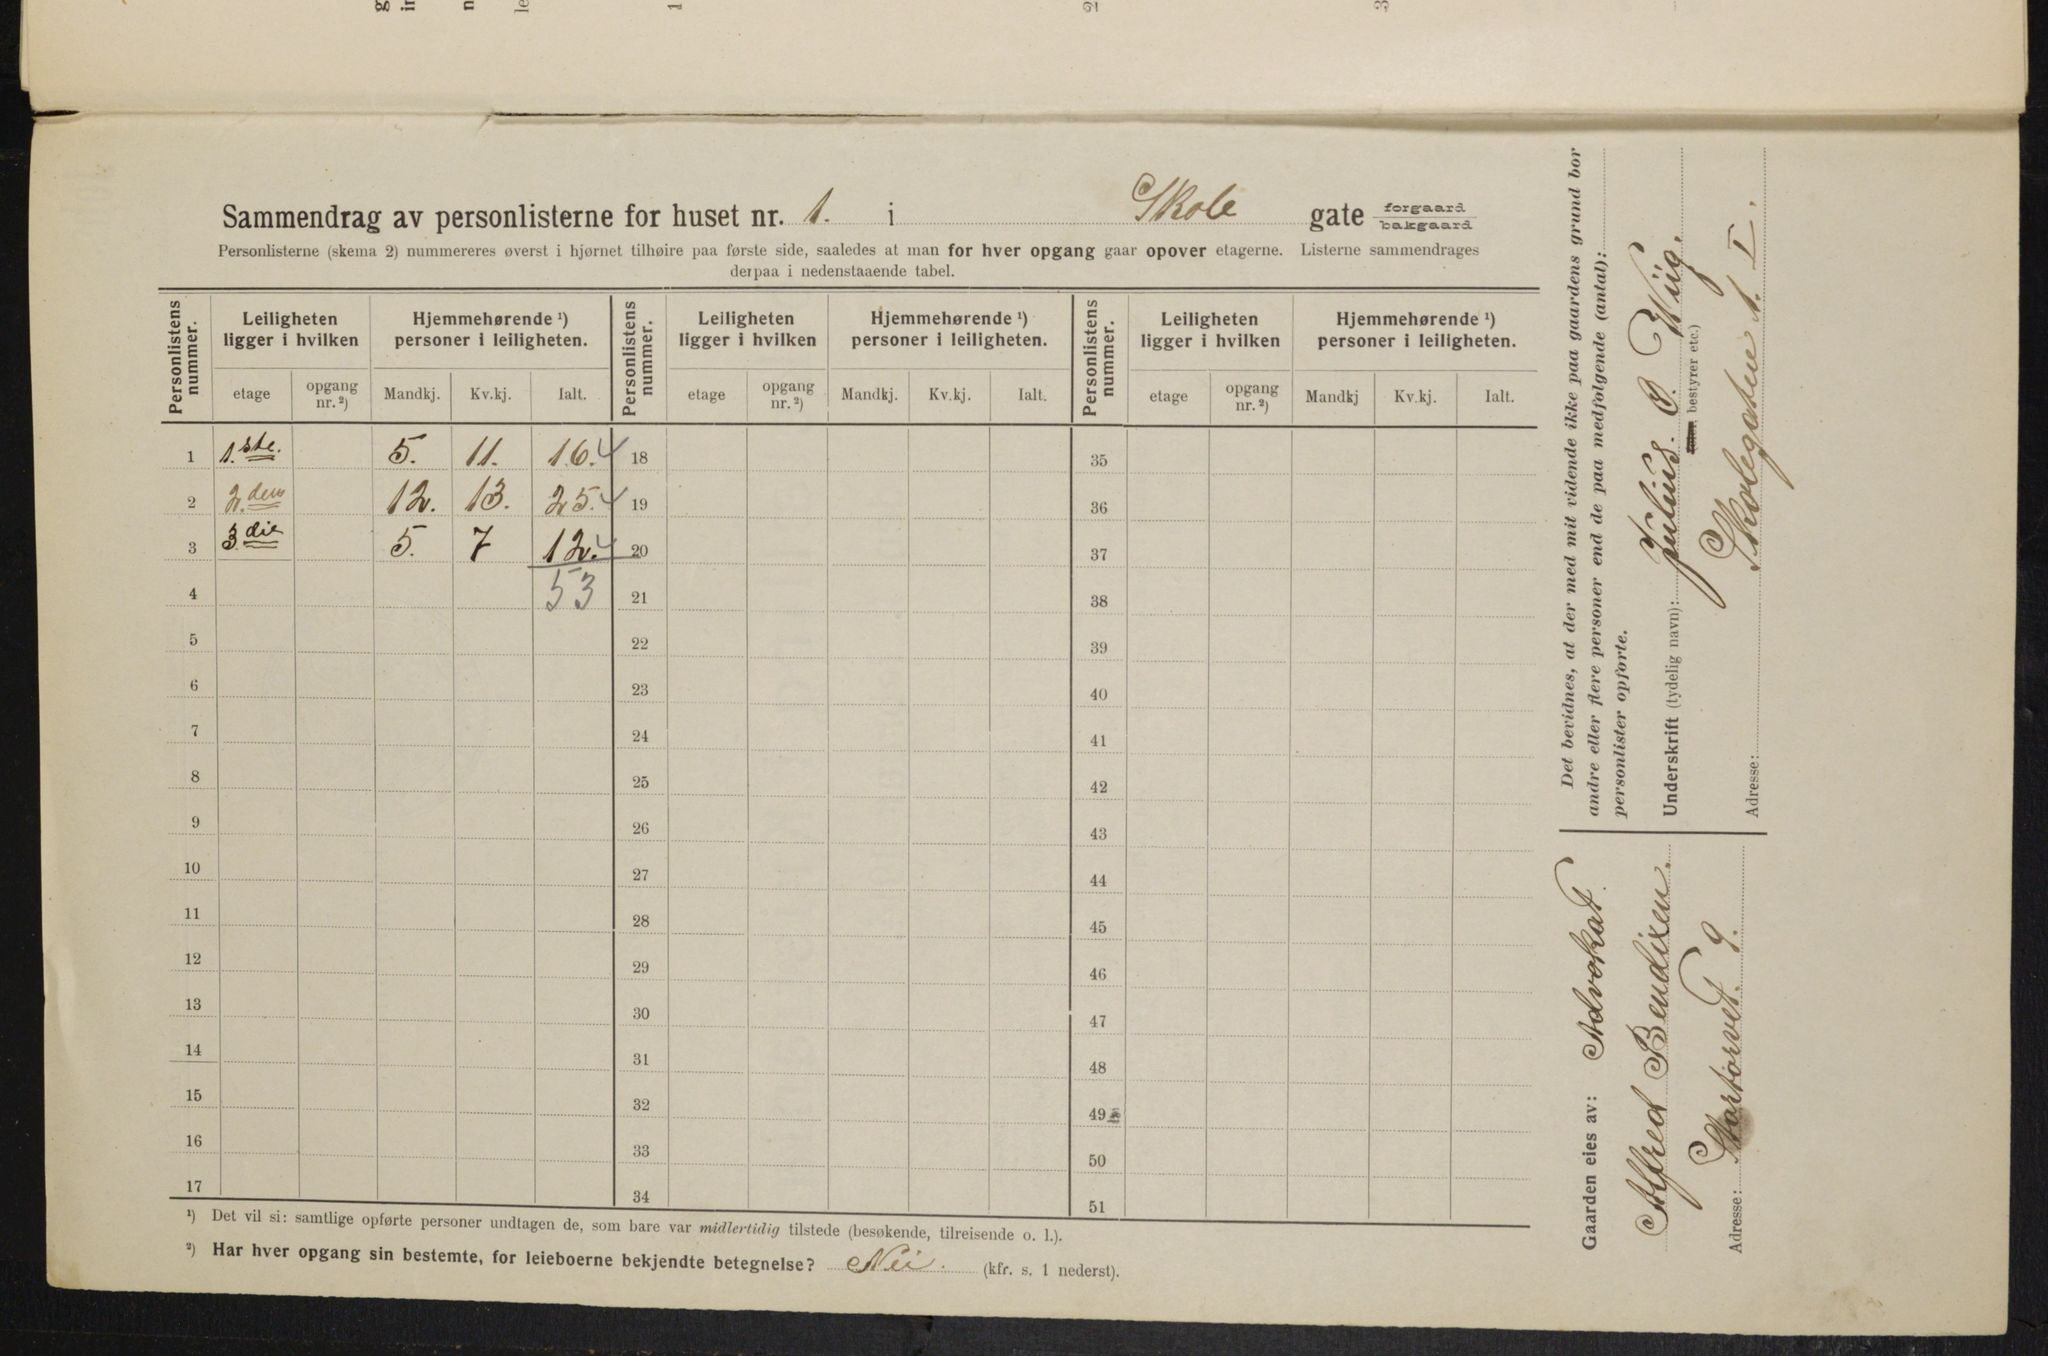 Sammendrag av personlisterne for huset nr. 1. i Skole gate forgaard / bakgaard
Personlisterne (skema 2) nummereres øverst i hjørnet tilhøire paa første side, saaledes at man for hver opgang gaar opover etagerne. Listerne sammendrages
derpaa i nedenstaaende tabel.
Personlistens nummer. Leiligheten ligger i hvilken Hjemmehørende ¹) personer i leiligheten. Personlistens nummer. Leiligheten ligger i hvilken Hjemmehørende ¹) personer i leiligheten. Personlistens nummer. Leiligheten ligger i hvilken Hjemmehørende ¹) personer i leiligheten.
etage opgang nr. ²) Mandkj. Kv.kj. Ialt. etage opgang nr. ²) Mandkj. Kv.kj. Ialt. etage opgang nr. ²) Mandkj Kv.kj. Ialt.
1 1.ste. 5. 11. 16. 18 35
2 2.den 12. 13. 25. 19 36
3 3.die 5. 7 12. 20 37
4 53 21 38
5 22 39
6 23 40
7 24 41
8 25 42
9 26 43
10 27 44
11 28 45
12 29 46
13 30 47
14 31 48
15 32 49
16 33 50
17 34 51
¹) Det vil si: samtlige opførte personer undtagen de, som bare var midlertidig tilstede (besøkende, tilreisende o. l.).
²) Har hver opgang sin bestemte, for leieboerne bekjendte betegnelse? Nei. (kfr. s. 1 nederst).
Det bevidnes, at der med mit vidende ikke paa gaardens grund bor
andre eller flere personer end de paa medfølgende (antal):
personlister opførte.
Underskrift (tydelig navn): Julius. O. Wiig.
bestyrer etc.)
Adresse: Skolegaten 1. I.
Gaarden eies av: Advokat
Alfred Bendixen.
Adresse: Stortorvet. 9.